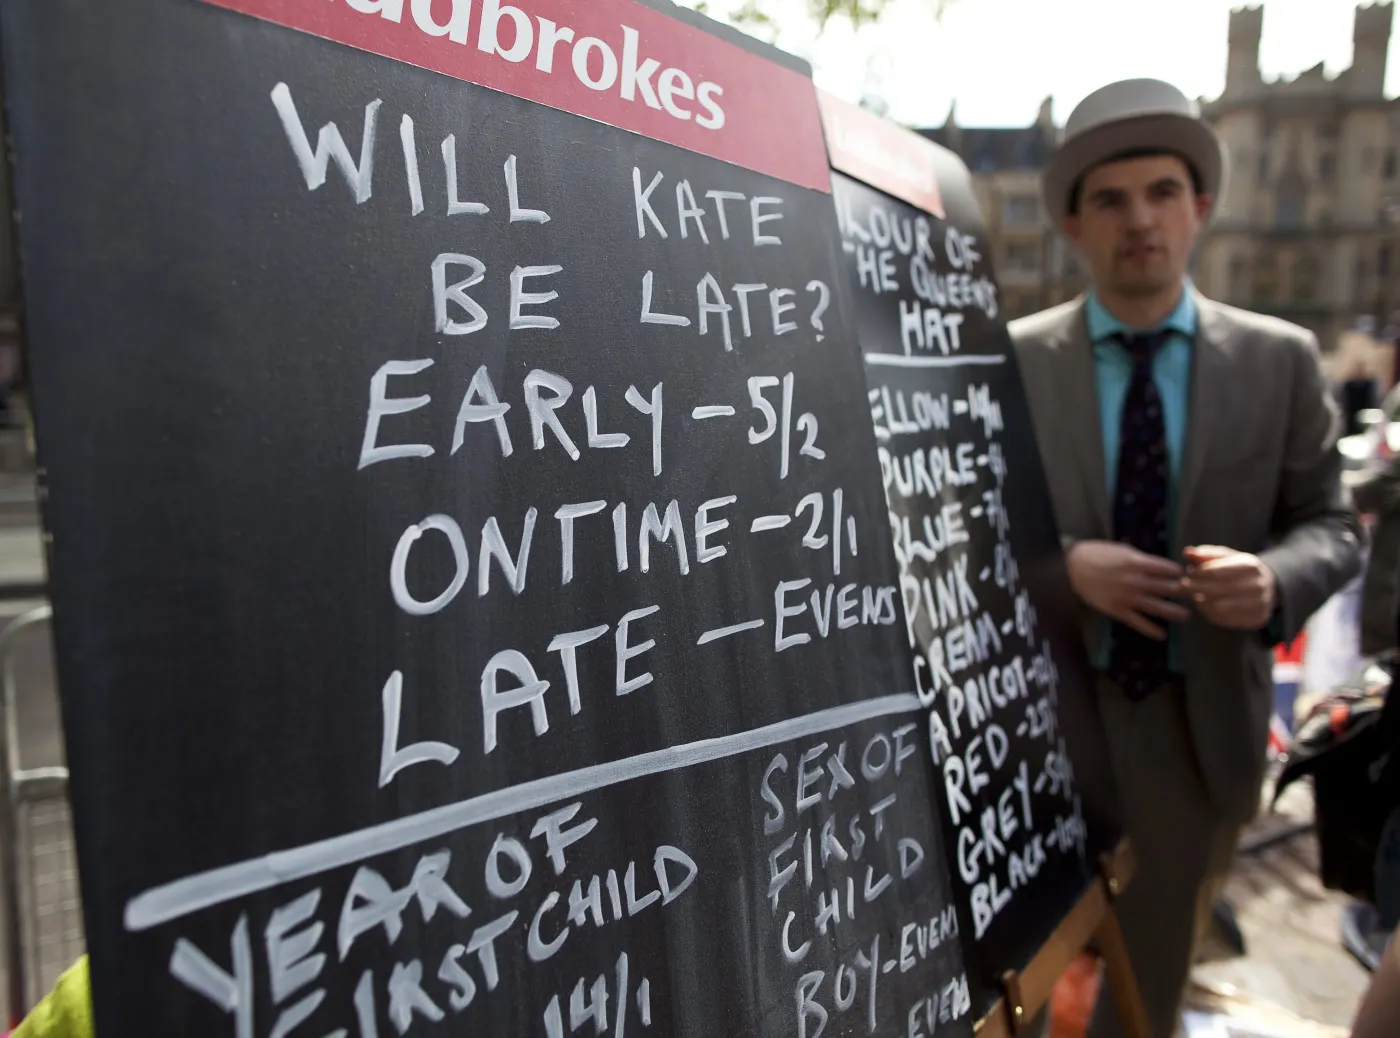 adbrokes
WILL KATE
BE LATE?
EARLY - 5/2
ONTIME - 2/1
LATE - EVENS
YEAR OF
FIRST CHILD
14/1
SEX OF
FIRST
CHILD
BOY - EVENS
EVENS
LOUR OF
THE QUEEN'S
HAT
ELLOW -
PURPLE -
BLUE -
PINK -
CREAM -
APRICOT -
RED -
GREY -
BLACK -